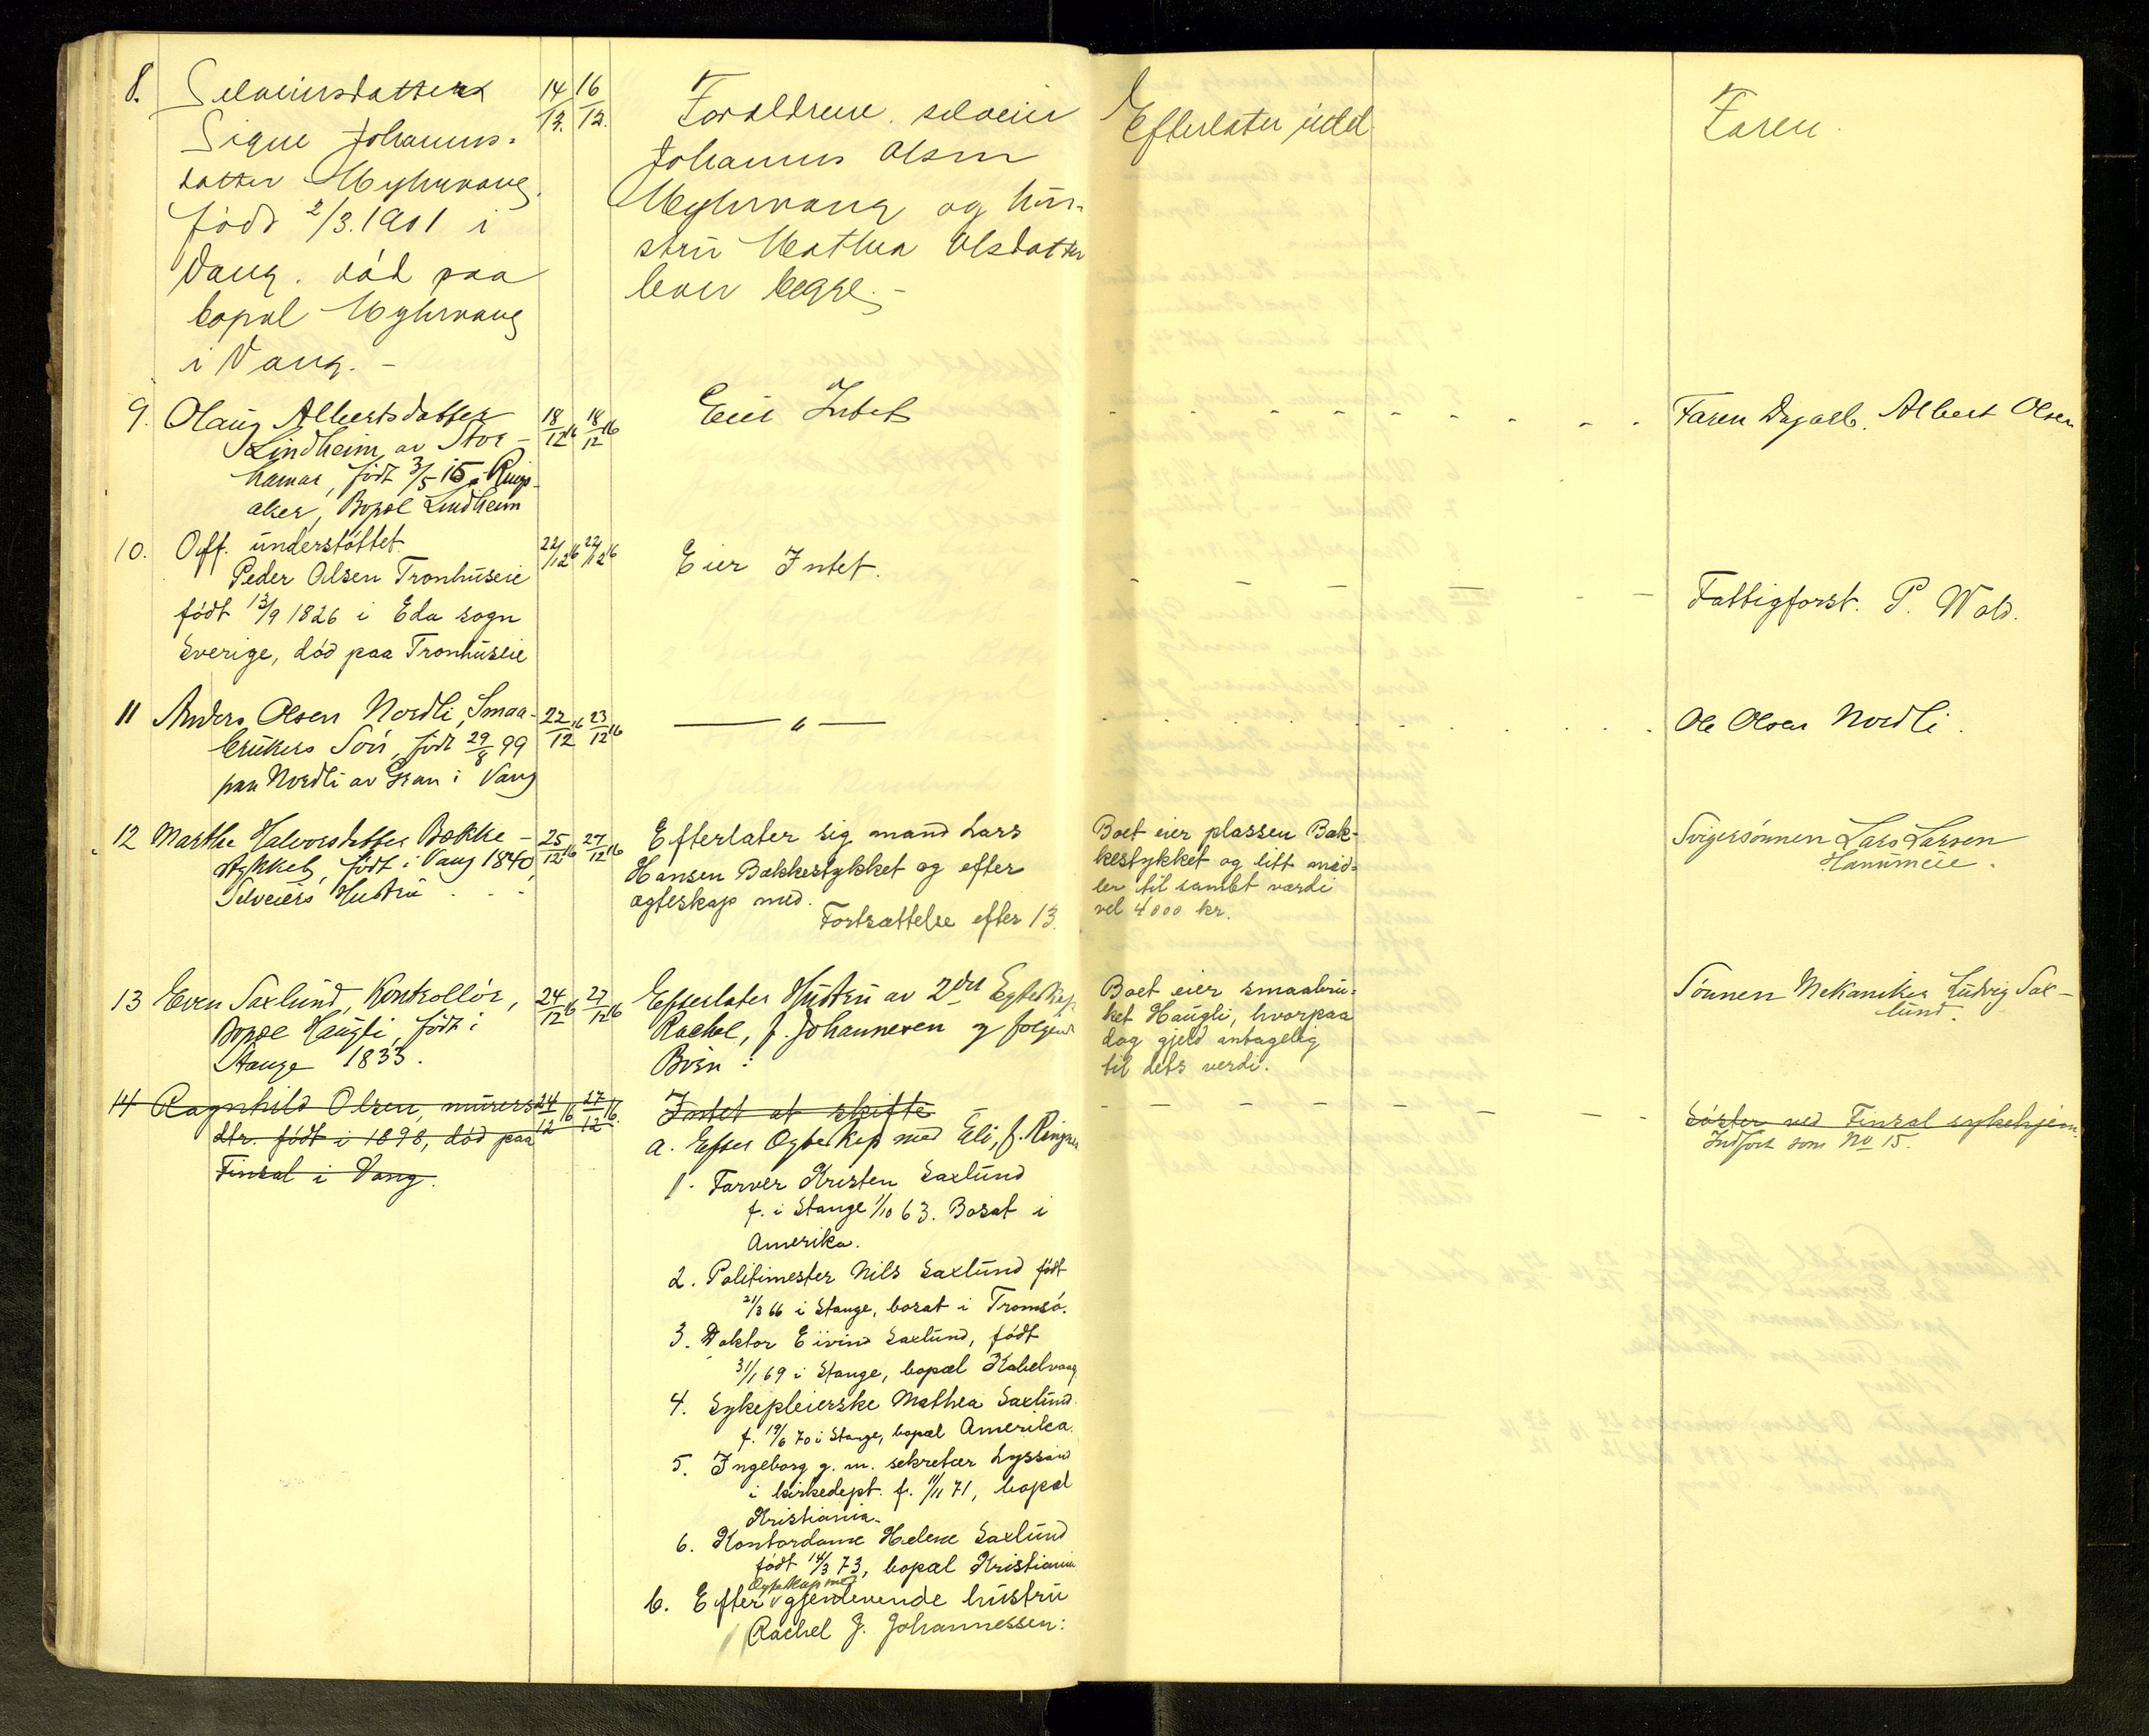 8. Selveiersdatter
Signe Johannes-
datter Myhrvang.
født 2/3. 1901 i
Vang. död paa
bopæl Myhrvang
i Vang. -
14/12. 16/12.
Forældrene. selveier
Johannes Olsen
Myhrvang og hu-
stru Mathea Olsdatter
lever begge. -
Efterlater intet
Faren.
9. Olaug Albertsdatter
Lindheim av Stor-
hamar, født 3/5 15 i Rings-
aker, Bopæl Lindheim
18/12 16 18/12 16
Eier Intet
- - - - - - - - -
Faren Dagarb. Albert Olsen
10. Off. understöttet
Peder Olsen Tronhuseie
födt 13/9 1826 i Eda sogn
Sverige, död paa Tronhuseie
22/12 16 22/12 16
Eier Intet.
- - - - - -
Fattigforst. P. Wold.
11 Anders Olsen Nordli, Smaa-
brukers Sön, födt 29/8 99
paa Nordli av Gran i Vang
22/12 16 23/12 16
— " —
Ole Olsen Nordli.
12 Marthe Halvorsdatter Bakke-
stykket, født i Vang 1840,
Selveiers Hustru . - -
25/12 16 27/12 16
Efterlater sig mand Lars
Hansen Bakkestykket og efter
ægteskap med.
Fortsættelse efter 13.
Boet eier plassen Bak-
kestykket og litt mid-
ler til samlet værdi
vel 4000 kr.
Svigersönnen Lars Larsen
Hammeie.
13 Even Saxlund, Kontrollör,
Bopæl Haugli, født i
Stange 1833.
24/12 16 27/12 16
Efterlater Hustru av 2det Egteskap
Rachel, f. Johannesen og følgende
Börn :
Boet eier smaabru-
ket Haugli, hvorpaa
dog gjeld antagelig
til dets verdi.
Sönnen Mekaniker Ludvig Sax-
lund.
14 Ragnhild Olsen, murers
dtr. födt i 1898, död paa
Finsal i Vang.
24/12 16 27/12 16.
Intet at skifte
- - - - - - -
Söster ved Finsal sykehjem.
Indfört som No 15.
a. Efter Egteskap med Eli, f. Ringnes
1. Farver Kristen Saxlund
f. i Stange 1/10 63. Bosat i
Amerika.
2. Politimester Nils Saxlund födt
21/3 66 i Stange, bosat i Tromsö.
3. Doktor Eivind Saxlund, födt
31/1 69 i Stange, bopæl Kabelvaag
4. Sykepleierske Mathea Saxlund
f. 19/6 70 i Stange, bopæl Amerika.
5. Ingeborg g. m. sekretær Lyssand
i kirkedept. f. 11/11 71, bopæl
Kristiania.
6. Kontordame Helene Saxlund
født 14/3 73, bopæl Kristiania
Egteskap med
b. Efter v gjenlevende hustru
Rachel f. Johannessen: